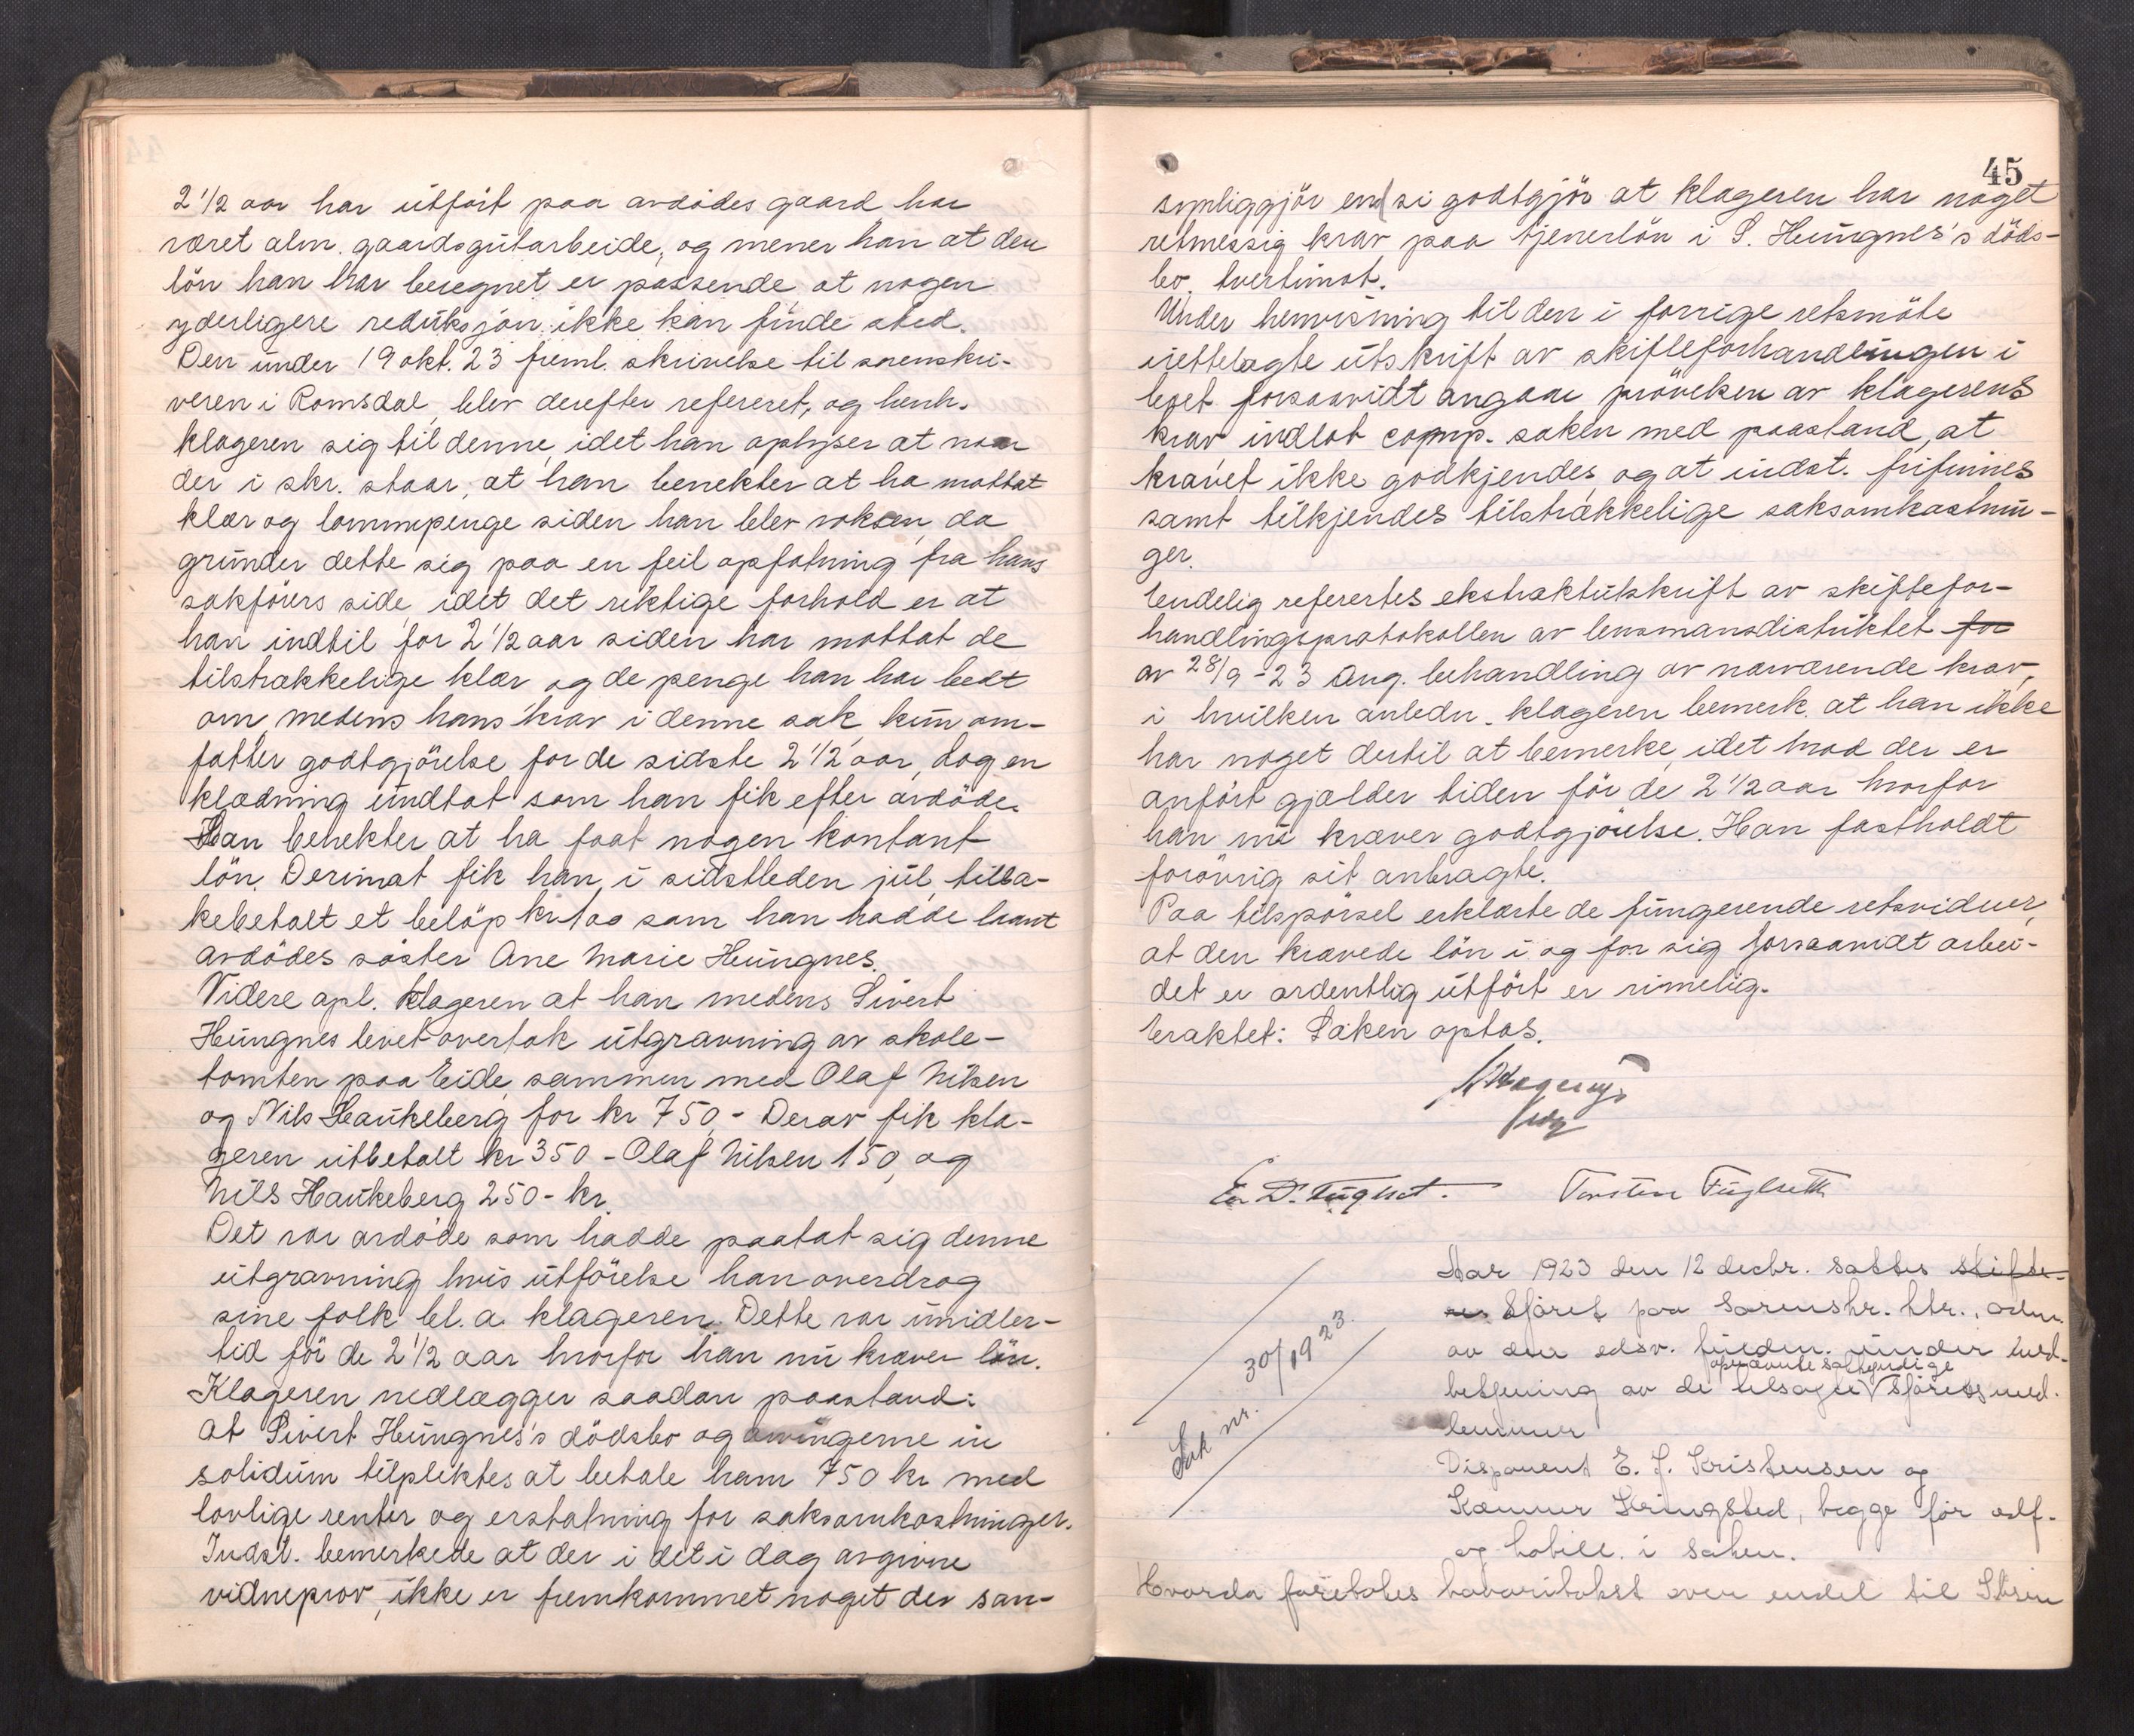 2 1/2 aar har utført paa avdødes gaard har
været alm. gaardsgutarbeide, og mener han at den
løn han har beregnet er passende at nogen
yderligere reduksjon ikke kan finde sted.
Den under 19 okt. 23 freml. skrivelse til sorenskri-
veren i Romsdal blev derefter referert, og henh.
klageren sig til denne, idet han oplyser at naar
der i skr. staar, at han benekter at ha mottat
klær og lommepenge siden han blev voksen, da
grunder dette sig paa en feil opfatning fra hans
sakførers side, idet det riktige forhold er at
han indtil for 2 1/2 aar siden har mottat de
tilstrækkelige klær og de penge han har bedt
om, medens hans krav i denne sak kun om-
fatter godtgjørelse for de sidste 2 1/2 aar, dog en
klædning undtat som han fik efter avdøde.
Han benekter at ha faat nogen kontant
løn. Derimot fik han i sidstleden jul tilba-
kebetalt et beløp kr 100 som han hadde laant
avdødes søster Ane Marie Hungnes.
Videre opl. klageren at han medens Sivert
Hungnes levet overtok utgravning av skole-
tomten paa Eide sammen med Olaf Nilsen
og Nils Haukeberg for kr 750,- Derav fik kla-
geren utbetalt kr 350 - Olaf Nilsen 150, og
Nils Haukeberg 250 - kr.
Det var avdøde som hadde paatat sig denne
utgravning hvis utførelse han overdrog
sine folk bl. a. klageren. Dette var imidler-
tid før de 2 1/2 aar hvorfor han nu kræver løn.
Klageren nedlægger saadan paastand:
At Sivert Hungnes's dødsbo og arvingerne in
solidum tilpliktes at betale ham 750 kr med
lovlige renter og erstatning for saksomkostninger.
Indst. bemerkede at der i det i dag avgivne
vidneprov, ikke er fremkommet noget der san-
45
synliggjør end si godtgjør at klageren har noget
retmessig krav paa tjenerløn i S. Hungnes's døds-
bo, tvertimot.
Under henvisning til den i forrige retsmøte
irettelagte utskrift av skifteforhandlingen i
boet forsaavidt angaar prøvelsen av klagerens
krav indlot comp. saken med paastand, at
kravet ikke godkjendes og at indst. frifinnes
samt tilkjendes tilstrækkelige saksomkostnin-
ger.
Endelig refertes ekstraktutskrift av skiftefor-
handlingsprotokollen av lensmansdistriktet for
av 28/9-23 ang. behandling av nærværende krav,
i hvilken anledn. klageren bemerk. at han ikke
har noget dertil at bemerke, idet hvad der er
anført gjælder tiden før de 2 1/2 aar hvorfor
han nu kræver godtgjørelse. Han fastholdt
forøvrig sit anbragte.
Paa tilspørsel erklærte de fungerende retsvidner,
at den krævede løn i og for sig forsaavidt arbei-
det er ordentlig utført er rimelig.
Eraktet: Saken optas.
E. D. Fuglset. Torsten Fuglseth
Sak nr. 30/1923.
Aar 1923 den 12 decbr. sattes skifte-
Sjøret paa Sorenskr. ktr., adm.
av den edsv. fuldm. under med-
opnævnte sakkyndige
betjening av de tilsagte Sjøretsmed-
lemmer
Disponent E. J. Kristensen og
Kæmner Kringsted, begge før edf.
og habile i saken.
Hvorda foretokes havaritakst over endel til